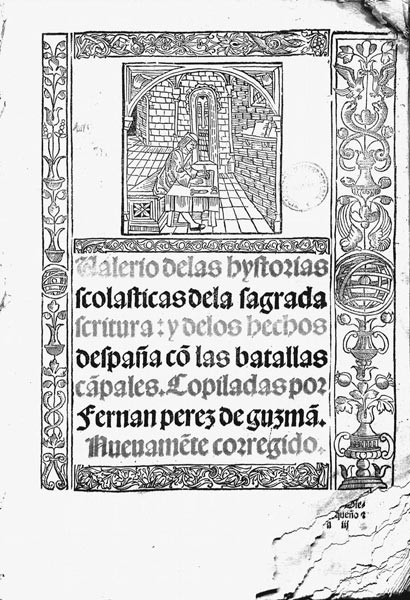 Valerio delas hystorias
scolasticas dela sagrada
scritura: y delos hechos
despaña cō las batallas
cāpales. Copiladas por
Fernan perez de guzmā.
Nuevamēte corregido.
queño